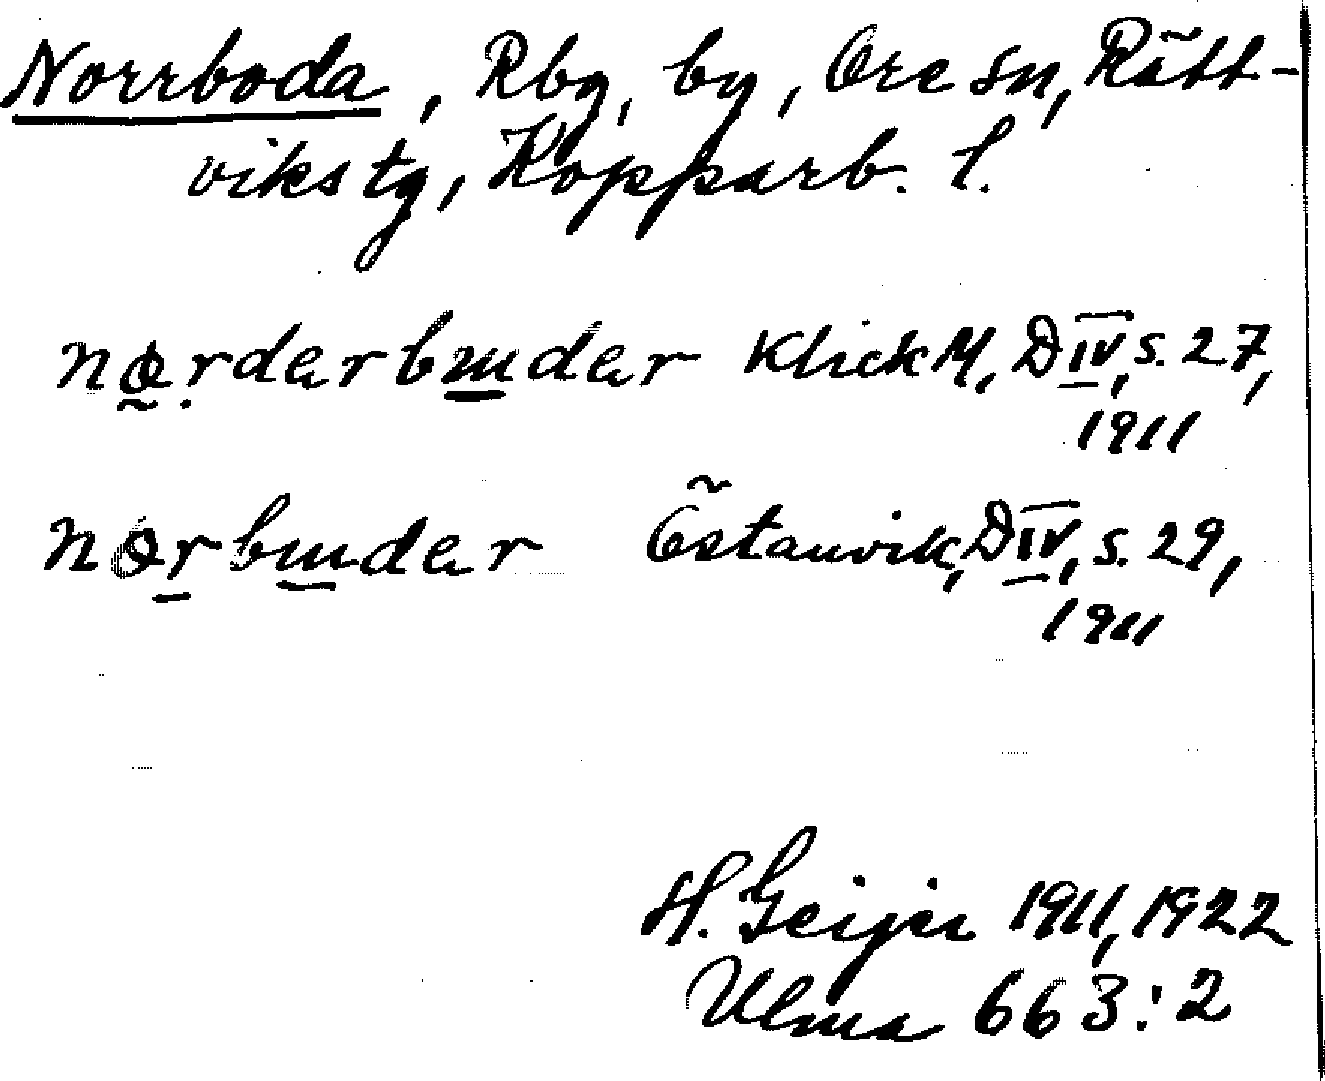 Norrboda, Rbg, by, Ore sn, Rätt-
viks tg, Kopparb. l.
nørderbɯder Klick M, D IV, s. 27,
1911
nørbɯder Östanvik, D IV, s. 29,
1911
H. Geijer 1911, 1922
Ulma 663:2